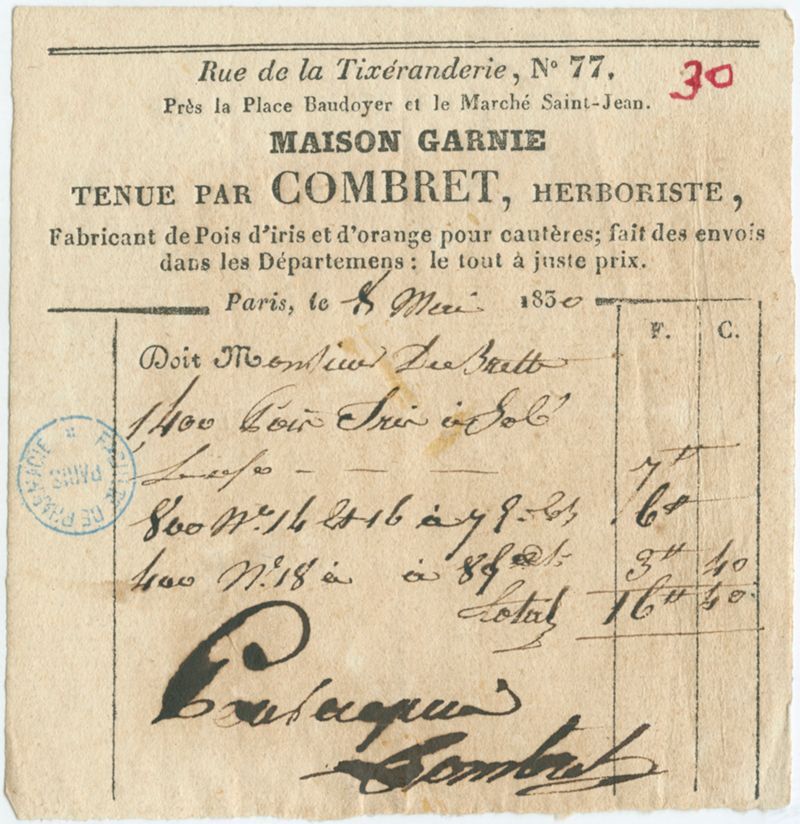 Rue de la Tixéranderie, N° 77,
30
Près la Place Baudoyer et le Marché Saint-Jean.
MAISON GARNIE
TENUE PAR COMBRET, HERBORISTE,
Fabricant de Pois d'iris et d'orange pour cautères; fait des envois
dans les Départemens: le tout à juste prix.
Paris, le 8 Mai 1830
F. C.
Doit Monsieur
1,400 Pois Iris à
7"
800 N° 14 et 16 à 7 6"
400 N° 18 à à 8 3" 40
Total 16" 40
Pour acquit
Combret
PARIS